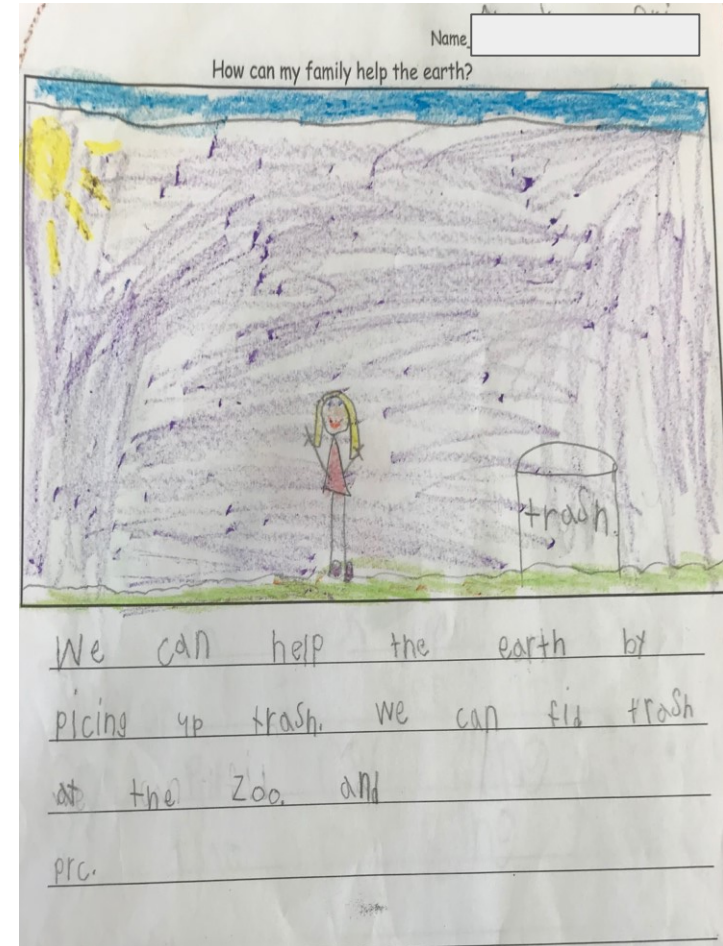 Name
How can my family help the earth?
trash.
We can help the earth by
picing up trash. We can fid trash
at the Zoo. and
prc.